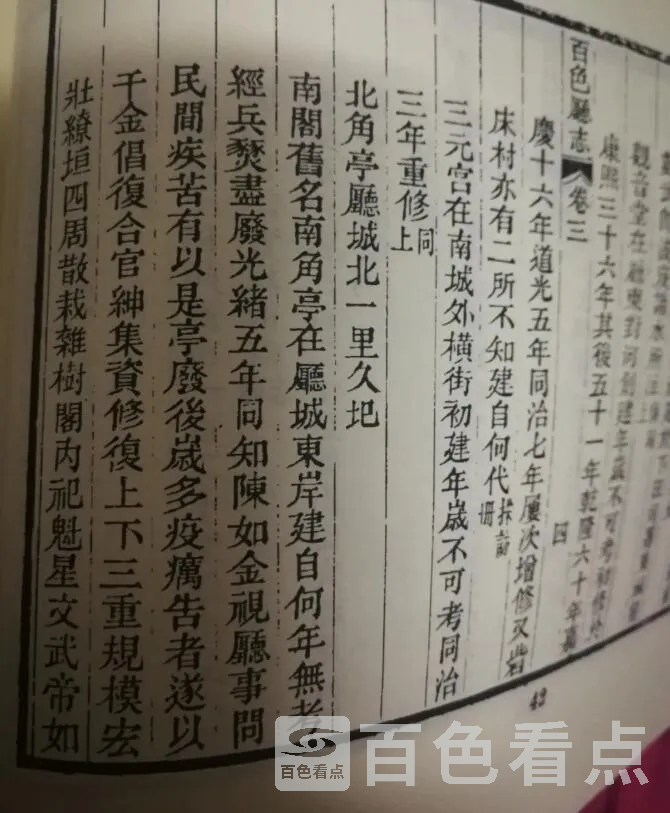 觀音堂在廳東對河創建年歲不可考初修於
康熙三十六年其後五十一年乾隆六十年嘉
百色廳志
卷三
四
慶十六年道光五年同治七年屢次增修又
床村亦有二所不知建自何代採訪冊
三元宮在南城外橫街初建年歲不可考同治
三年重修同上
北角亭廳城北一里久圮
南閣舊名南角亭在廳城東岸建自何年無考
經兵燹盡廢光緒五年同知陳如金視廳事問
民間疾苦有以是亭廢後歲多疫癘告者遂以
千金倡復合官紳集資修復上下三重規模宏
壯繚垣四周散栽雜樹閣内祀魁星文武帝如
43
百色看点
百色看点